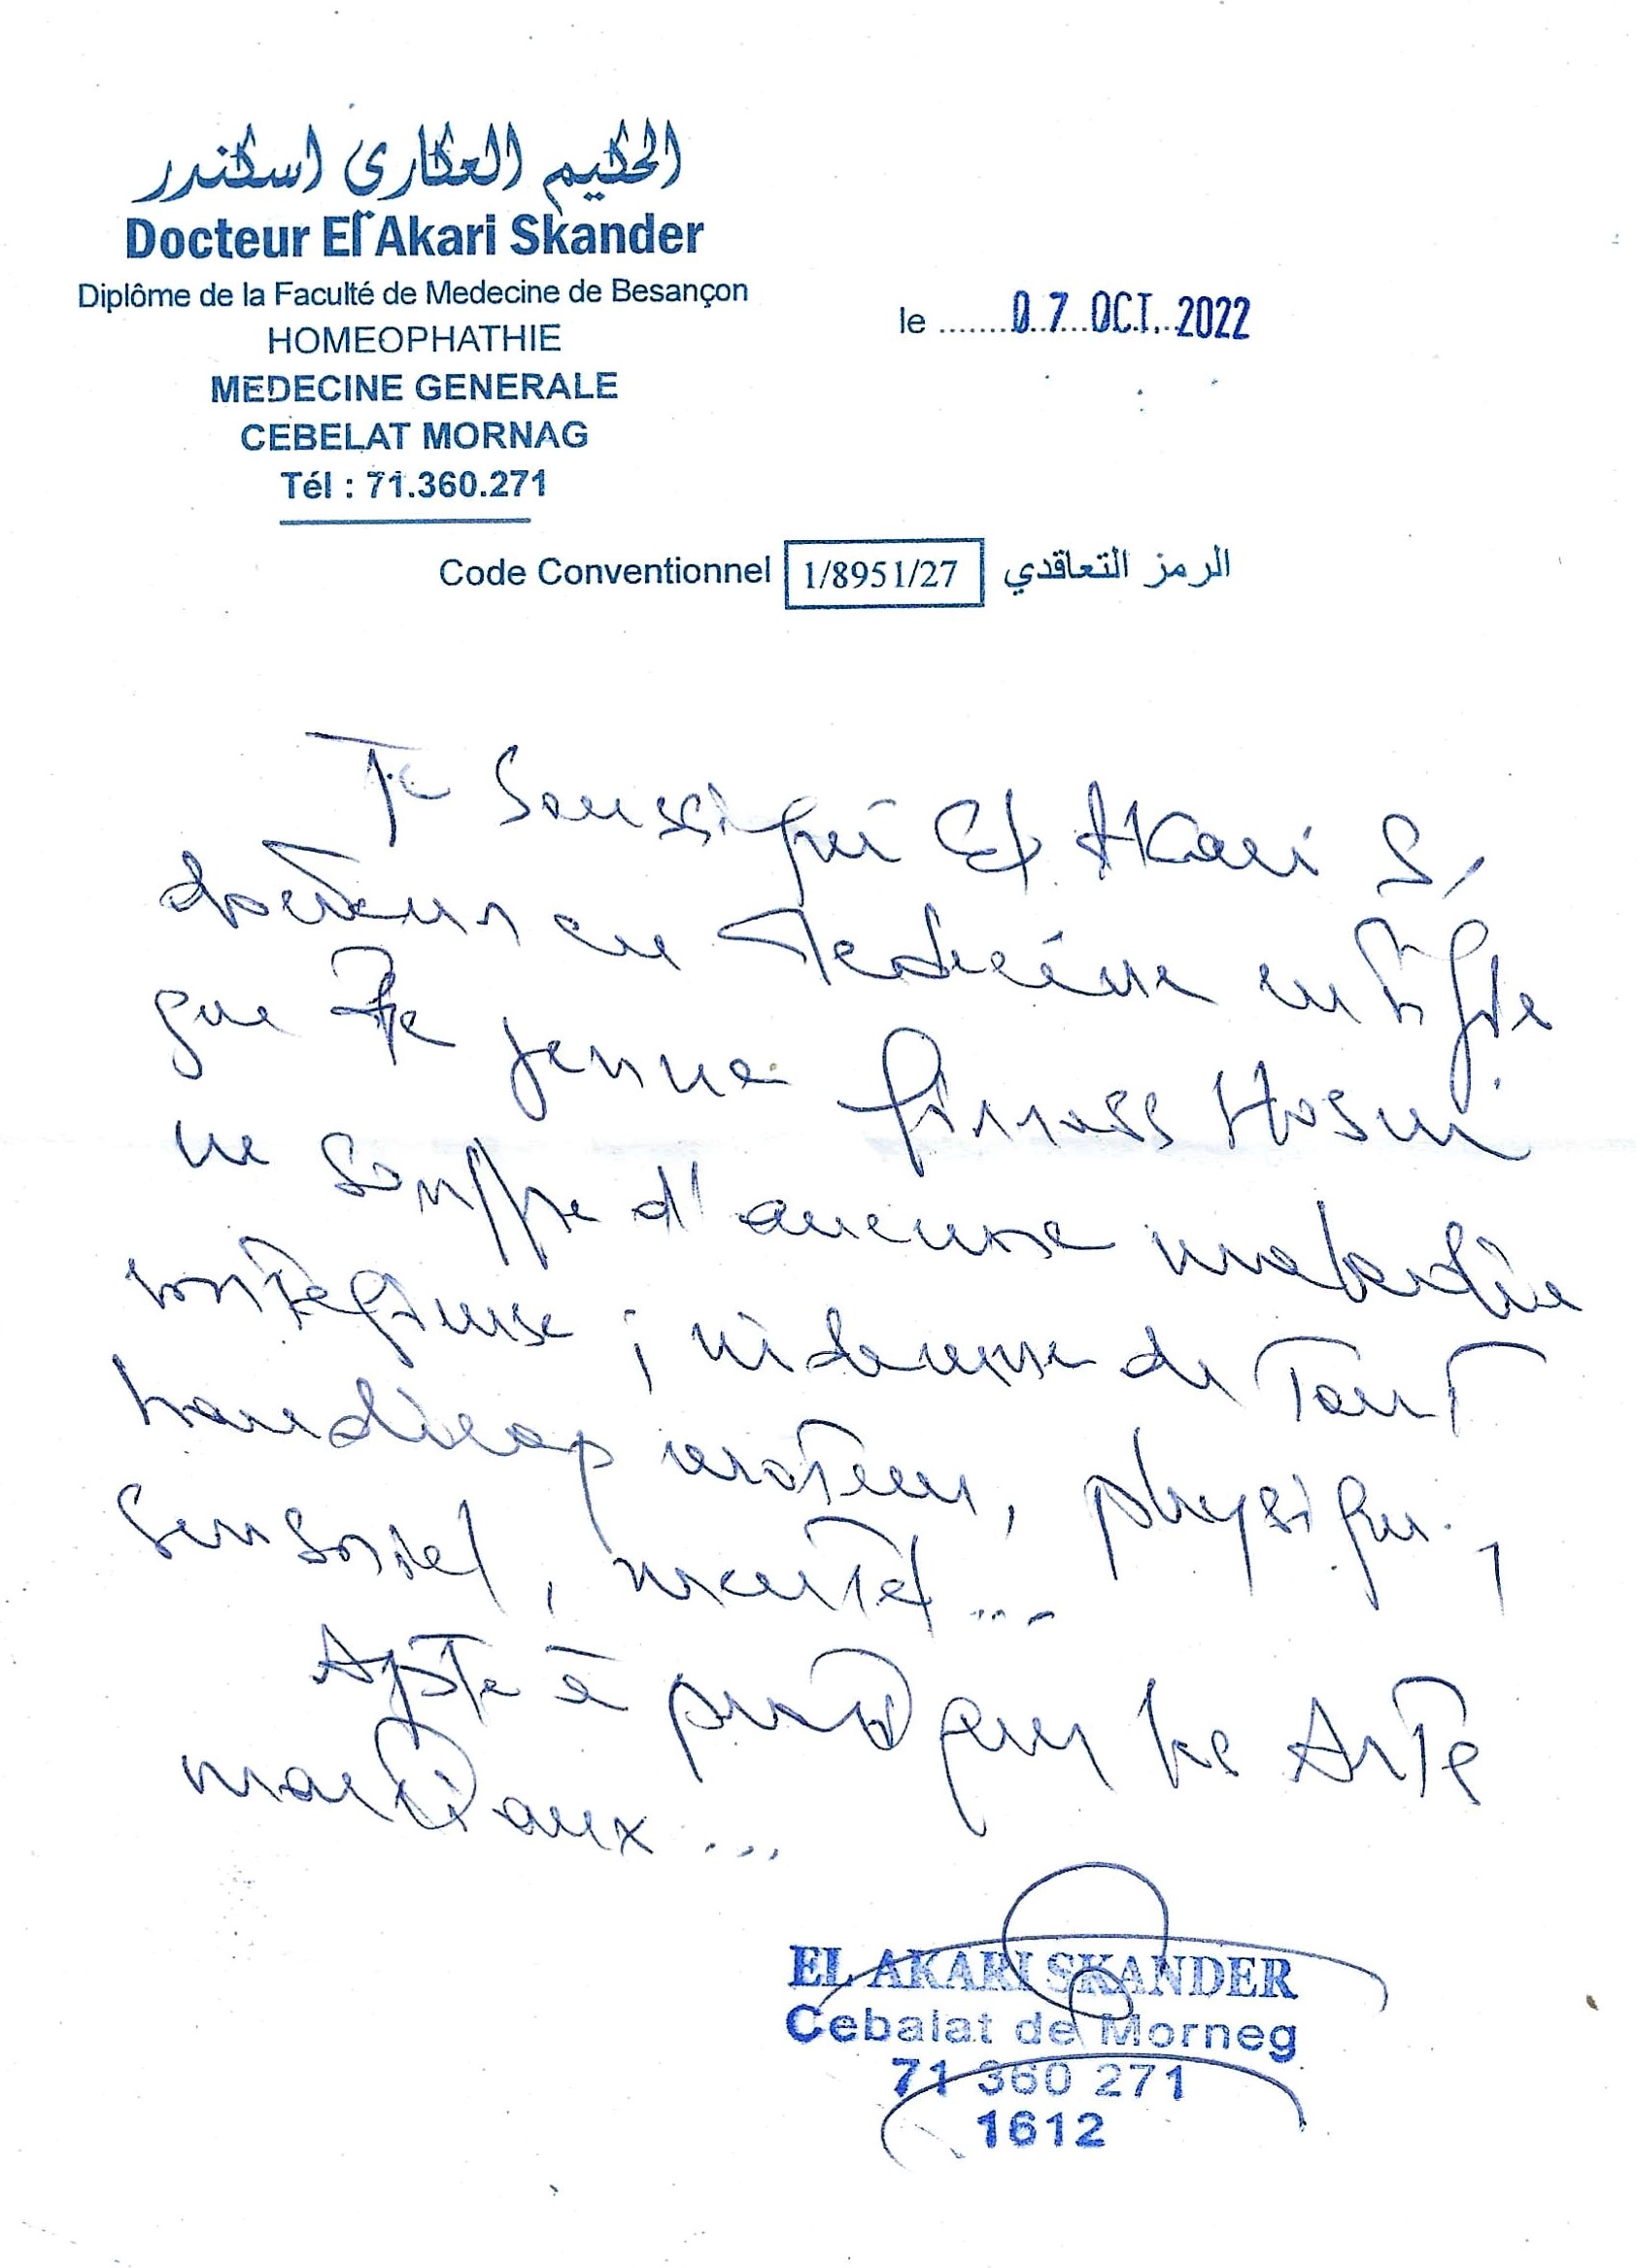 الحكيم العكاري اسكندر
Docteur El Akari Skander
Diplôme de la Faculté de Medecine de Besançon
HOMEOPHATHIE
MEDECINE GENERALE
CEBELAT MORNAG
Tél : 71.360.271
le ........0.7...OCT...2022
Code Conventionnel 1/8951/27 الرمز التعاقدي
Je soussigné El Akari S,
docteur en Medecine certifie
que le jeune firness Hosni
ne souffre d'aucune maladie
contagieuse ; indemne de Tout
handicap moteur, physique,
sensoriel, mental ...
Apte à pratiquer les Arts
martiaux ...
EL AKARI SKANDER
Cebalat de Morneg
71 360 271
1612